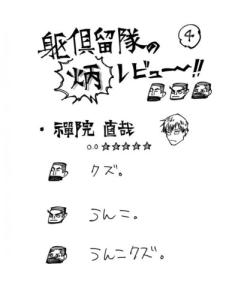 躯倶留隊の ④
炳レビュー〜!!
・禪院 直哉
0.0 ☆☆☆☆☆
クズ。
うんこ。
うんこクズ。